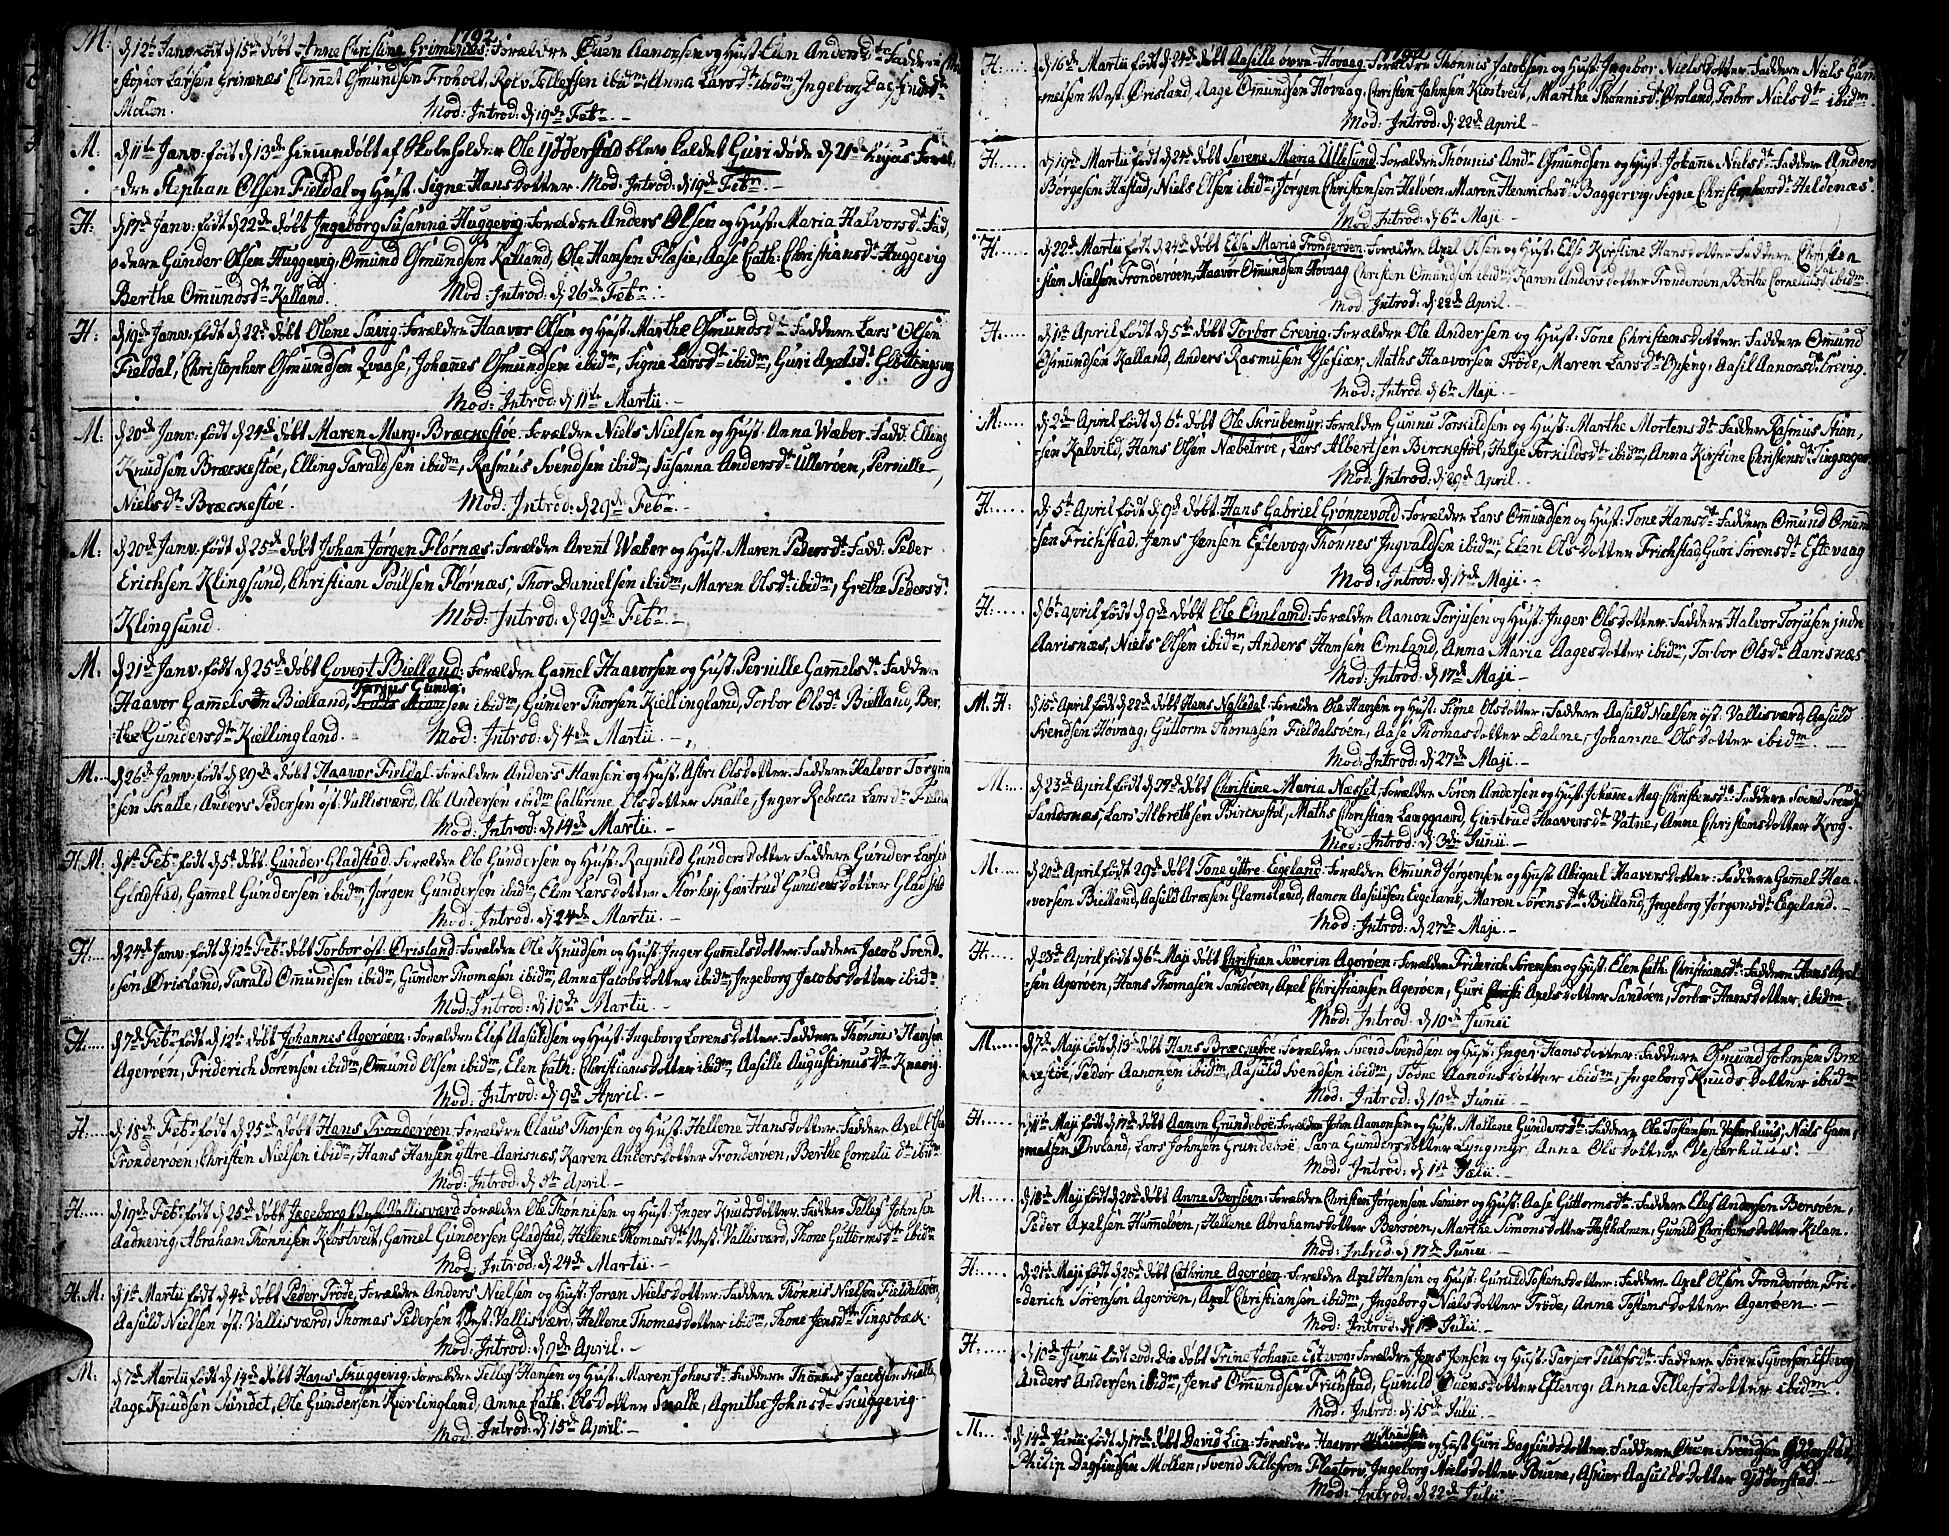 1792
M: d 12te Janv: født d 15de døbt Anne Christine Grimenæs: Forældre Ouen Aanonsen og Hust:
Jesper Larsen Grimenæs, Clemet Osmundsen Froholt, Rolv Tellefsen ibidm, Anna Larsdtr ibidm, Ingeborg
Mollen. Mod: Introd: d 19de Febr. -
M. d 11te Janv: født d 13de hiemmedøbt af Skoleholder Ole Ydderstad blev kaldet Guri døde d 21de hujus Foræl-
dre Stephan Olsen Fieldal og Hust: Signe Hansdotter. Mod: Introd: d 19de Febr. -
H: d 17de Janv: født d 22de døbt Ingeborg Susanna Huggevig: Forældre Anders Olsen og Hust: Maria Halvorsdtr Fad-
dere Gunder Olsen Huggevig, Omund Osmundsen Kalland, Ole Hansen Fløsie, Aase Cath: Christiansdtr Huggevig
Berthe Omundsdtr Kalland. Mod: Introd: d 26de Febr. -
H: d 19de Janv: født d 22de døbt Olene Sævig: Forældre Haavor Olsen og Hust: Marthe Osmundsdtr Faddere Lars Olsen
Fieldal, Christopher Osmundsen Qvaase, Johannes Osmundsen ibidm, Signe Larsdtr ibidm, Guri Axelsdtr
Mod: Introd: d 11te Martii. -
M: d 20de Janv: født d 24de døbt Maren Marg: Bræckestøe: Forældre Niels Nielsen og Hust: Anna Wæber: Fadd: Elling
Knudsen Bræckestøe, Elling Taraldsen ibidm, Rasmus Svendsen ibidm, Susanna Andersdtr Ullerøen, Pernille
Nielsdtr Bræckestøe. Mod: Introd: d 29de Febr. -
M: d 20de Janv: født d 25de døbt Johan Jørgen Flørnæs: Forældre Arent Wæber og Hust: Maren Pedersdtr Fadd: Peder
Erichsen Klingsund, Christian Poulsen Flørnæs, Thor Danielsen ibidm, Maren Olsdtr ibidm, Grethe Pedersdtr
Klingsund. Mod: Introd: d 29de Febr. -
M: d 21de Janv: født d 25de døbt Govert Bielland: Forældre Gamel Haavorsen og Hust: Pernille Gamelsdtr Faddere
Haavor Gamelsen Bielland, Tarjus Gunder-sen ibidm, Gunder Thorsen Kiellingland, Torbor Olsdtr Bielland, Ber-
the Gundersdtr Kiellingland. Mod: Introd: d 4de Martii. -
M. d 26de Janv: født d 29de døbt Haavor Fieldal: Forældre Anders Hansen og Hust: Astri Olsdotter: Faddere Halvor
sen Skalle, Anders Pedersen øst: Vallisværd, Ole Andersen ibidm, Cathrine Olsdotter Skalle, Inger Rebecca Larsdtr
Mod: Introd: d 14de Martii. -
H: M: d 1ste Febr født d 5te døbt Gunder Gladstad: Forældre Ole Gundersen og Hust: Ragnild Gundersdotter Faddere Gunder Larsen
Gladstad, Gamel Gundersen ibidm, Jørgen Gundersen ibidm, Elen Larsdotter, Giertrud Gundersdotter Gladstad
Mod: Introd: d 24de Martii. -
H. d 24de Janv: født d 12te Febr døbt Torbor øst Ørisland: Forældre Ole Knudsen og Hust: Inger Gamelsdotter: Faddere Jacob Svend-
sen Ørisland, Tarald Omundsen ibidm, Gunder Thomæsen ibidm, Anna Jacobsdotter ibidm, Ingeborg Jacobsdotter ibidm
Mod: Introd: d 10de Martii. -
H. d 7de Febr født d 12te døbt Johannes Agerøen: Forældre Elef Aasuldsen og Hust: Ingeborg Lorensdotter: Faddere Thønnes Hansen
Agerøen, Friderich Sørensen ibidm, Omund Olsen ibidm, Elen Cath: Christiansdotter ibidm, Aasille Augustinusdtr Knævig.
Mod: Introd: d 9de April. -
H. d 18de Febr født d 25de døbt Hans Trønderøen: Forældre Claus Thorsen og Hust: Hellene Hansdotter: Faddere Axel Olsen
Trønderøen, Christen Nielsen ibidm, Hans Hansen yttre Aarisnæs, Karen Andersdotter Trønderøen, Berthe Corneliidtr ibidm
Mod: Introd: d 5te April -
H. d 19de Febr født d 25de døbt Ingeborg Vest: Vallisværd Forældre Ole Thønnisen og Hust: Inger Knudsdotter: Faddere Tellef Johnsen
Aadnevig, Abraham Thønnisen Kiostveit, Gamel Gundersen Gladstad, Hellene Thomasdtr Vest: Vallisværd, Thone Guttormsdtr ibidm
Mod: Introd: d 24de Martii. -
H: M: d 1ste Martii født d 4de døbt Peder Frøde, Forældre Anders Nielsen og Hust: Joran Nielsdotter: Faddere Thønnis Nielsen Fieldalsøen,
Aasuld Nielsen øst: Vallisværd, Thomas Pedersen Vest: Vallisværd, Hellene Thomasdotter ibidm, Thone Jensdtr Tingsbæk.
Mod: Introd: d 9de April. -
M. d 7de Martii født d 14de døbt Hans Skuggevig: Forældre Tellef Hansen og Hust: Maren Johnsdtr Faddere Thønnes Jacobsen Skalle
Aage Knudsen Sundet, Ole Gundersen Kierlingland, Anne Cath: Olsdotter Skalle, Agnethe Johnsdtr Skuggevig.
Mod: Introd: d 15de April. -
1792
H. d 16de Martii født d 24de døbt Aasille øvre Høvaag: Forældre Thønnis Jacobsen og Hust: Ingebor Nielsdotter: Faddere Niels Gam-
melsen Vest: Ørisland, Aage Omundsen Høvaag, Christen Jahnsen Kiostveit, Marthe Thønnisdtr Ørisland, Torbor Nielsdtr ibidm.
Mod: Introd: d 22de April -
H. d 19de Martii født d 24de døbt Serene Maria Ullesund: Forældre Thønnis Andr: Osmundsen og Hust: Johane Nielsdtr Faddere Anders
Børgesen Hæstad, Niels Elsen ibidm, Jørgen Christensen Helvøen, Maren Henrichsdtr Baggervig, Signe Christophersdtr Heldenæs.
Mod: Introd: d 6te Maji -
H. d 22de Martii født d 24de døbt Else Maria Trønderøen: Forældre Axel Olsen og Hust: Else Kirstine Hansdotter Faddere Christen
sten Nielsen Trønderøen, Haavor Omundsen Høvaag, Christen Omundsen ibidm, Karen Andersdotter Trønderøen, Berthe Corneliusdtr ibidm.
Mod: Introd: d 22de April. -
H. d 1ste April født d 5te døbt Torbor Erevig: Forældre Ole Andersen og Hust: Tone Christensdotter: Faddere Omund
Osmundsen Kalland, Anders Rasmusen, Maths Haavorsen Frøde, Maren Larsdtr Opseng, Aasil Aanonsdtr Erevig.
Mod: Introd: d 6te Maji. -
M. d 2de April født d 6te døbt Ole Skrubemyr: Forældre Gunnu Torkildsen og Hust: Marthe Mortensdtr Faddere Rasmus Thor-
sen Kalvild, Hans Olsen Næbetrøe, Lars Albertsen Birckestøl, Helje Torkildsdtr ibidm, Anna Kirstine Christensdtr
Mod: Introd: d 29de April. -
H. d 5te April født d 9de døbt Hans Gabriel Grønnevold: Forældre Lars Omundsen og Hust: Tone Hansdtr Faddere Omund Omund-
sen Frichstad, Jens Jensen Eftevog, Thønnes Ingvaldsen ibidm, Elen Olsdotter Frichstad, Guri Sørensdtr Eftevaag
Mod: Introd: d 17de Maji. -
H. d 6te April født d 9de døbt Ole Omland: Forældre Aanon Torjusen og Hust: Inger Olsdotter: Faddere Halvor Torjusen indre
Aarisnæs, Niels Olsen ibidm, Anders Hansen Omland, Anna Maria Aagesdotter ibidm, Torbor Olsdtr Aarisnæs.
Mod: Introd: d 17de Maji -
M. H. d 15de April født d 22de døbt Hans Nasledal: Forældre Ole Hansen og Hust: Signe Olsdotter: Faddere Aasuld Nielsen øst: Vallisværd, Aasuld
Svendsen Høvaag, Guttorm Thomæsen Fieldalsøen, Aase Thomasdotter Dalene, Johanne Olsdotter ibidm.
Mod: Introd: d 27de Maji. -
M. d 23de April født d 27de døbt Christine Maria Næsset: Forældre Søren Andersen og Hust: Johanne Mag: Christensdtr Faddere Svend
Sandsnæs, Lars Albretsen Birckestøl, Maths Christian Langgaard, Giertrud Haavorsdtr Vatne, Anne Christensdotter Krog.
Mod: Introd: d 3die Junii. -
M. d 20de April født 29de døbt Tone yttre Eegeland: Forældre Omund Jørgensen og Hust: Abigael Haavorsdotter: Faddere Gamel Haa-
vorsen Bielland, Aasuld Aresen Glamsland, Aanon Aasuldsen Eegeland, Maren Sørensdtr Bielland, Ingeborg Jørgensdtr Eegeland.
Mod: Introd: d 27de Maji. -
H. d 28de April født d 6te Maji døbt Christian Severin Agerøen: Forældre Friderich Sørensen og Hust: Elen Cath: Christiansdtr Faddere Hans Axel-
sen Agerøen, Hans Thomæsen Sandøen, Axel Christiansen Agerøen, Guri Axelsdotter Sandøen, Torbor Hansdotter ibidm. -
Mod: Introd: d 10de Junii -
M. d 7de Maji født d 13de døbt Hans Bræckestøe: Forældre Svend Svendsen og Hust: Inger Hansdotter: Faddere Osmund Johnsen Bræ-
ckestøe, Peder Aanonsen ibidm, Aasuld Svendsen ibidm, Tone Aanonsdotter ibidm, Ingeborg Knudsdotter ibidm
Mod: Introd: d 10de Junii -
H. d 11te Maji født d 17de døbt Aanon Grundebøe: Forældre John Aanonsen og Hust: Mallene Gundersdtr Faddere Ole Tostensen Vesterhuus, Niels Gam-
melsen Øvland, Lars Johnsen Grundebøe, Sara Gundersdotter Lyngmyr, Anna Olsdotter Vesterhuus.
Mod: Introd: d 1ste Julii. -
M. d 18de Maji født d 20de døbt Anne Bersøen: Forældre Christen Jørgensen Senior og Hust: Aase Guttormsdtr Faddere Elef Andersen Bersøen,
Peder Axelsen Hummeløen, Hellene Abrahamsdotter Bersøen, Marthe Simonsdotter Hestholmen, Gunild Christensdotter Kelan.
Mod: Introd: d 17de Junii -
H. d 21de Maji født d 28de døbt Cathrine Agerøen: Forældre Axel Hansen og Hust: Gunild Tostensdotter: Faddere Axel Olsen Trønderøen, Fri-
derich Sørensen Agerøen, Axel Christiansen ibidm, Ingeborg Nielsdotter Frøde, Anne Tostensdotter Agerøen. -
Mod: Introd: d 1ste Julii -
H. d 10de Junii født eod: Die døbt Trine Johanne Eftevog: Forældre Jens Jensen og Hust: Tarjer Tellefsdtr Faddere Søren Syversen Eftevog
Anders Andersen ibidm, Jens Omundsen Frichstad, Gunild Ouensdotter Eftevog, Anna Tellefsdotter ibidm.
Mod: Introd: d 15de Julii -
M. d 14de Junii født d 17de døbt David Lien: Forældre Haavor Knudsen og Hust: Guri Dagfindsdotter: Faddere Ouen Svendsen Ydderstad,
Philip Dagfindsen Mollen, Svend Tellefsen, Ingeborg Nielsdotter Buene, Asuer Aasuldsdotter Ydderstad. -
Mod: Introd: d 22de Julii